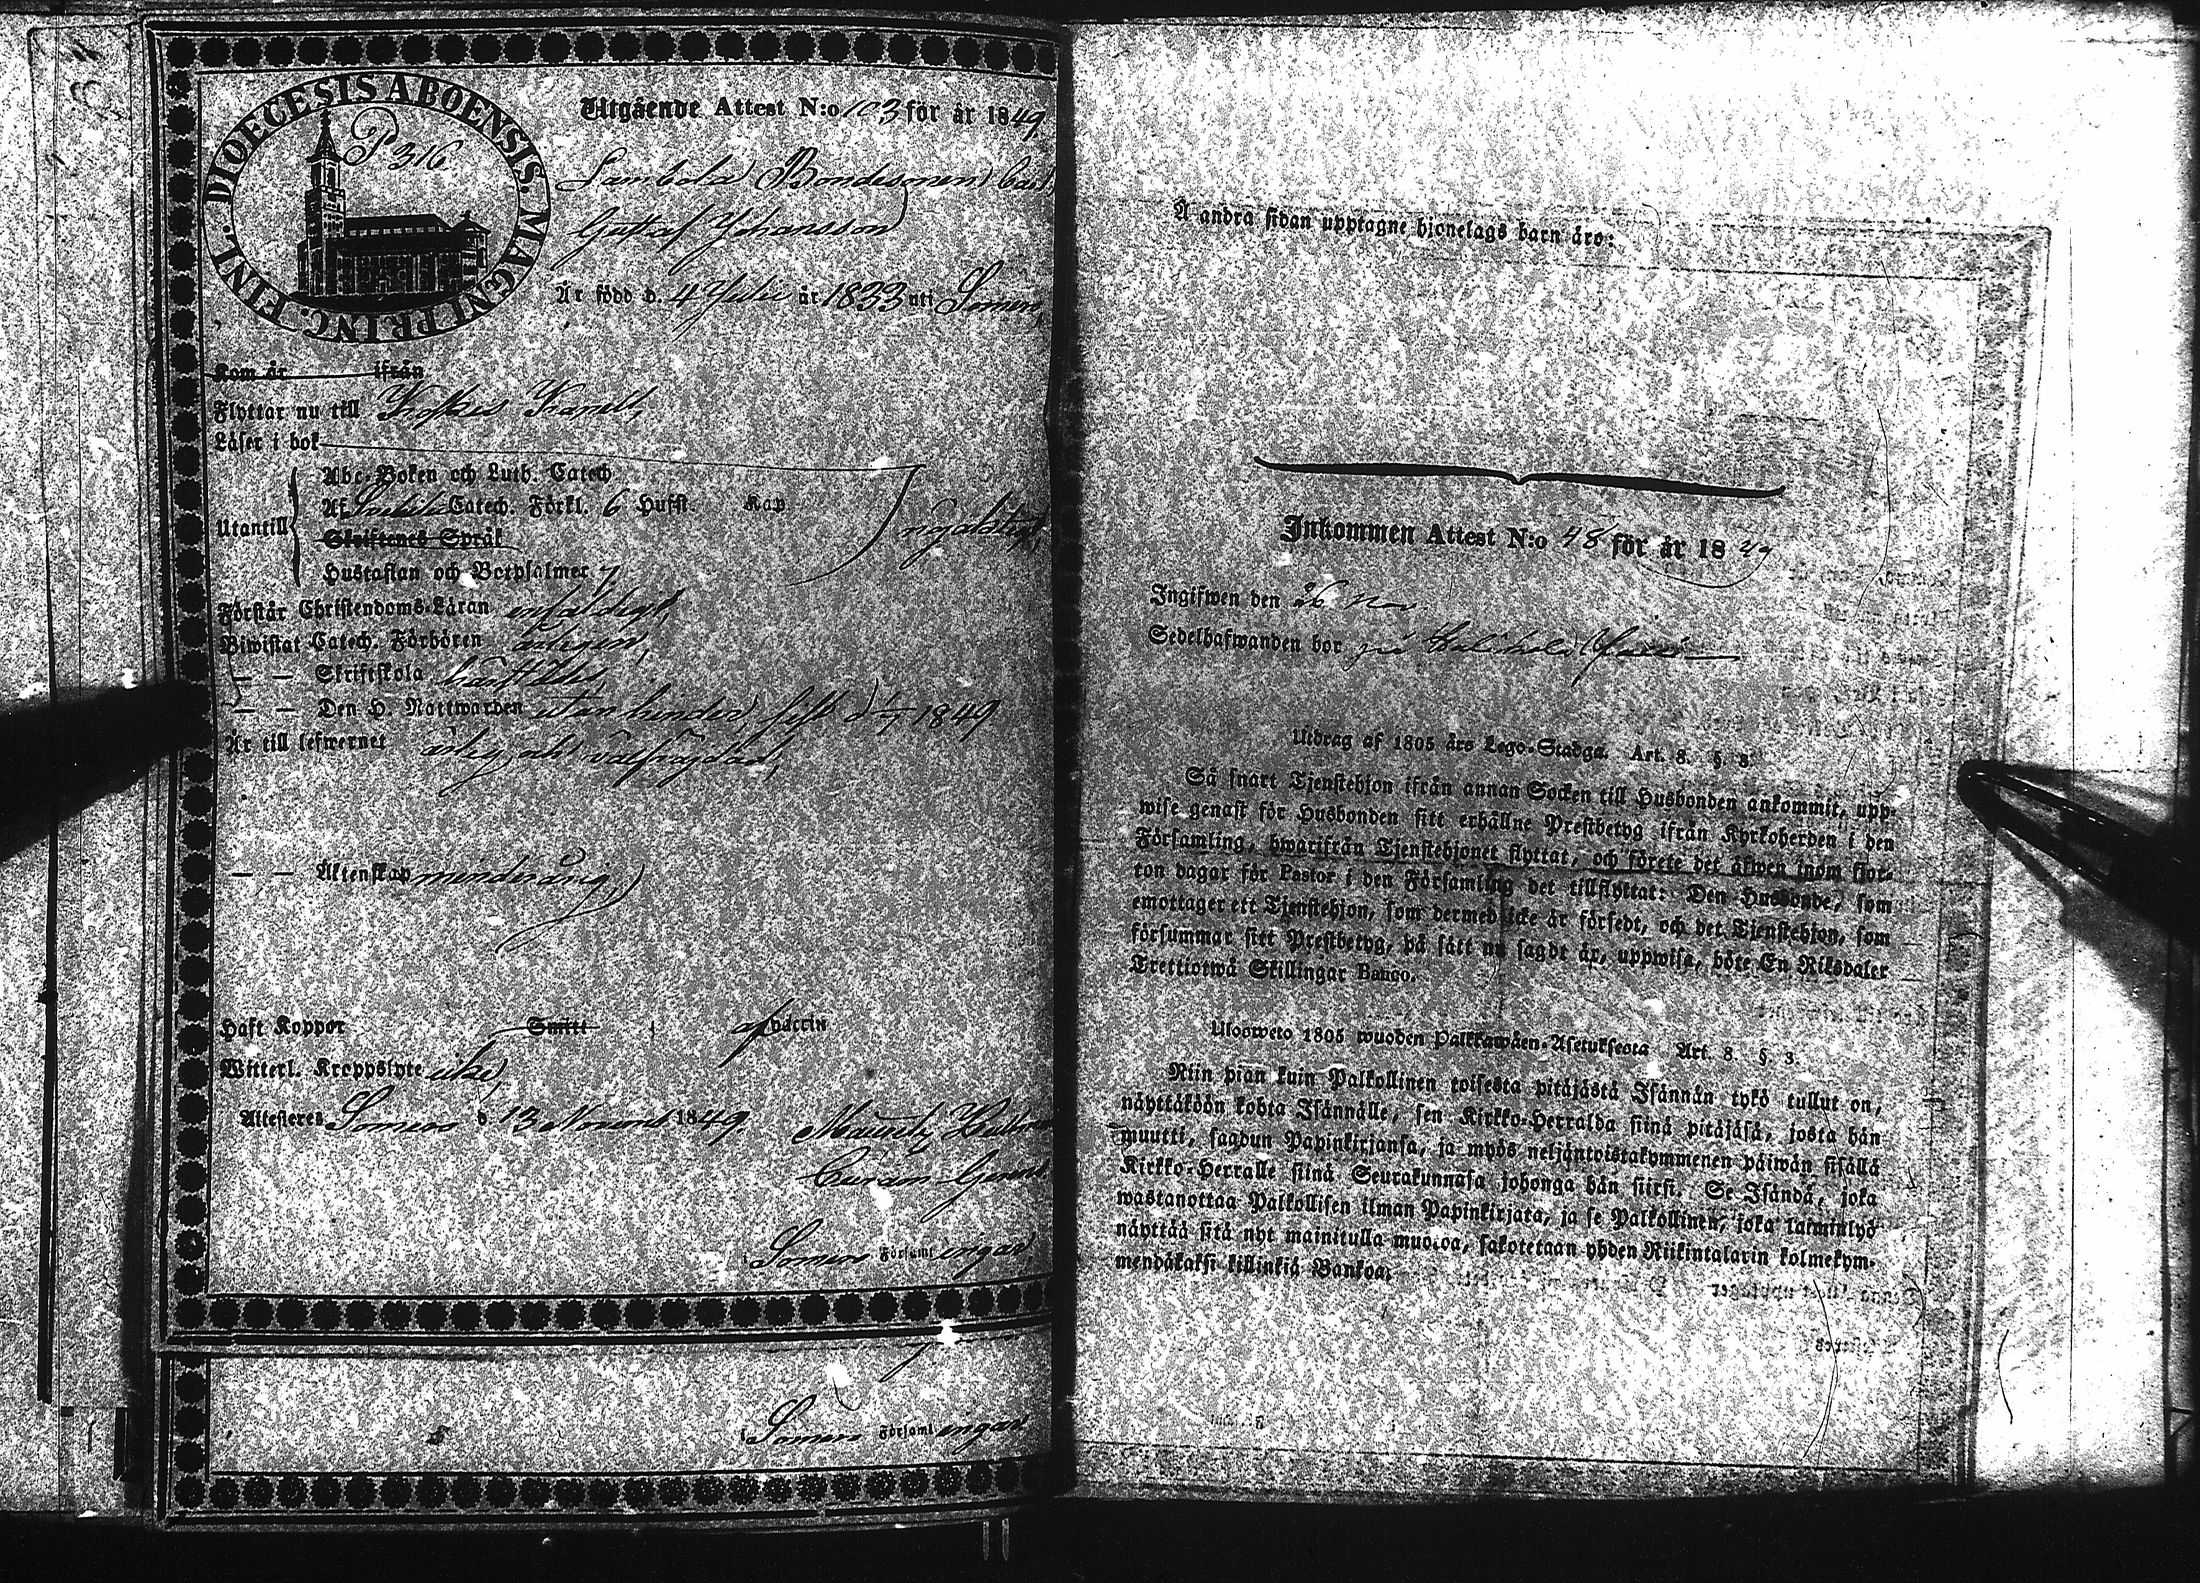 DIOECESIS ABOENSIS. MAGNI PRINC. FINL.
P 316
Utgående Attest N:o 103 för år 1849.
Lambola Bondesonen Carl
Gustaf Johansson
Är född d. 4 Julii år 1833 uti Somero,
Kom år ifrån
Flyttar nu till
Läser i bok
Utantill
Abc-Boken och Luth. Catech
Af Catech. Förkl. 6 Hufst. Kap
Skriftenes Språk
Hustaflan och Botpsalmer
någorlunda
Förstår Christendoms-Läran enfaldigt,
Biwistat Catech. Förhören årligen,
— — Skriftskola
— — Den H. Nattwarden utan hinder, sist d 1/7 1849
Är till lefwernet ärlig och välfrejdad,
— — Äktenskap minderårig,
Haft Koppor Smitt af vaccin
Witterl. Kroppslyte icke,
Attesteras Somero d. 13 Novemb 1849
i Somero Församlingar
i Somero Församlingar
Å andra sidan upptagne hjonelags barn äro:
Inkommen Attest N:o 48 för år 1849
Ingifwen den 26 Nov
Sedelhafwanden bor på
Utdrag af 1805 års Lego-Stadga. Art. 8. §. 3.
Så snart Tjenstehjon ifrån annan Socken till Husbonden ankommit, upp-
wise genast för Husbonden sitt erhållne Prestbetyg ifrån Kyrkoherden i den
Församling, hwarifrån Tjenstehjonet flyttat, och förete det äfwen inom fjor-
ton dagar för Pastor i den Församling det tillflyttat: Den Husbonde, som
emottager ett Tjenstehjon, som dermed icke är försedt, och det Tjenstehjon, som
försummar sitt Prestbetyg, på sätt nu sagdt är, uppwisa, böte En Riksdaler
Trettiotwå Skillingar Banco.
Ulosweto 1805 wuoden Palkkawäen-Asetuksesta Art. 8. §. 3.
Niin pian kuin Palkollinen toisesta pitäjästä Isännän tykö tullut on,
näyttäköön kohta Isännälle, sen Kirkko-Herralda siinä pitäjäsä, josta hän
muutti, saadun Papinkirjansa, ja myös neljäntoistakymmenen päiwän sisällä
Kirkko-Herralle siinä Seurakunnasa johonga hän siirsi. Se Isändä, joka
wastanottaa Palkollisen ilman Papinkirjata, ja se Palkollinen, joka laiminlyö
näyttää sitä nyt mainitulla muotoa, sakotetaan yhden Riikintalarin kolmekym-
mendäkaksi killinkiä Bankoa.